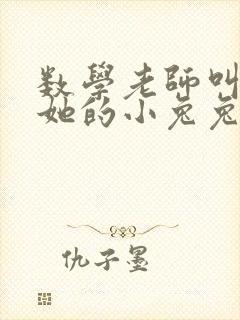 数學老師叫
她的小兔兔
仇子墨